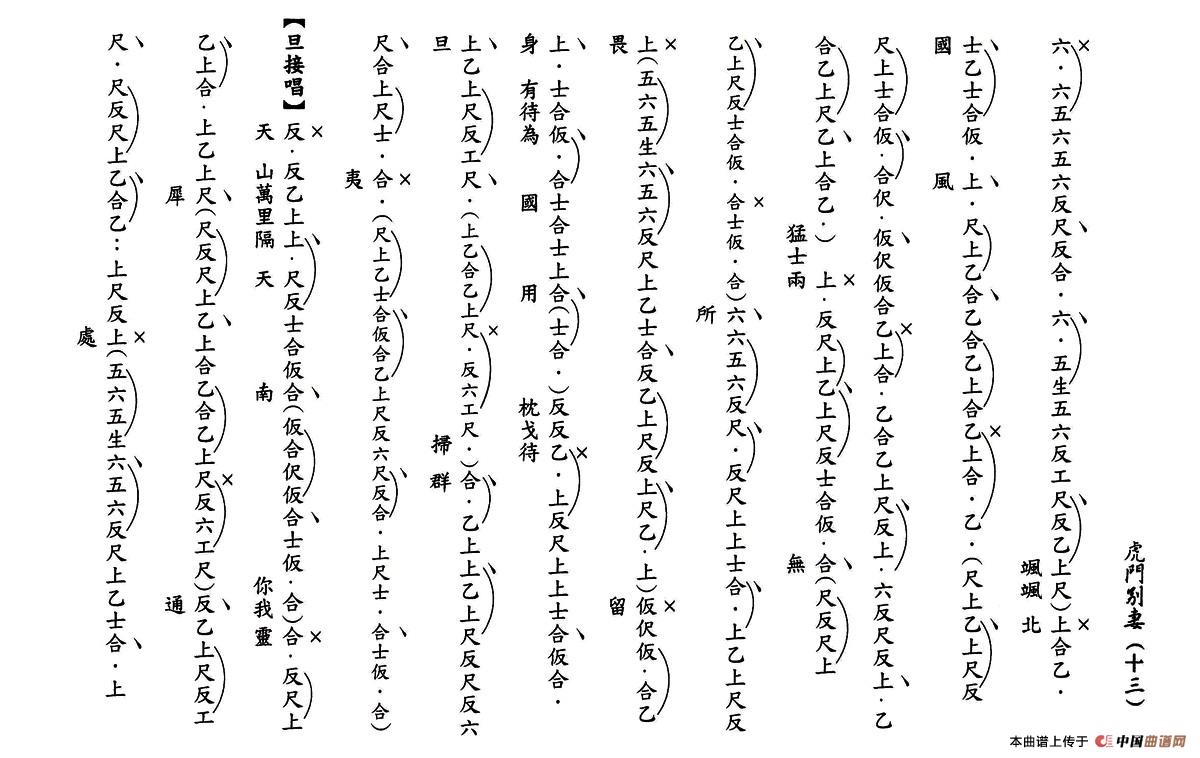 虎門別妻（十三）
六．六五六五六反尺反合．六．五生五六反工尺反乙上尺）上合乙．
颯颯　北
士乙士合仮．上．尺上乙合乙合乙上合乙上合．乙．（尺上乙上尺反
國　風
尺上士合仮．合伬．仮伬仮合乙上合．乙合乙上尺反上．六反尺反上．乙
合乙上尺乙上合乙．）上．反尺上乙上尺反士合仮．合（尺反尺上
猛士兩　無
乙上尺反士合仮．合士仮．合）六六五六反尺．反尺上上士合．上乙上尺反
所
上（五六五生六五六反尺上乙士合反乙上尺反上尺乙．上）仮伬仮．合乙
畏　留
上．士合仮．合士合士上合（士合．）反反乙．上反尺上上士合仮合．
身　有待為　國　用　枕戈待
上乙上尺反工尺．（上乙合乙上尺．反六工尺．）合．乙上上乙上尺反尺反六
旦　掃　群
尺合上尺士．合．（尺上乙士合仮合乙上尺反六尺反合．上尺士．合士仮．合）
夷
【旦接唱】反．反乙上上．尺反士合仮合（仮合伬仮合士仮．合）合．反尺上
天　山萬里隔　天　南　你我靈
乙上合．上乙上尺（尺反尺上乙上合乙合乙上尺反六工尺）反乙上尺反工
犀　通
尺．尺反尺上乙合乙：上尺反上（五六五生六五六反尺上乙士合．上
處
本曲谱上传于 中国曲谱网